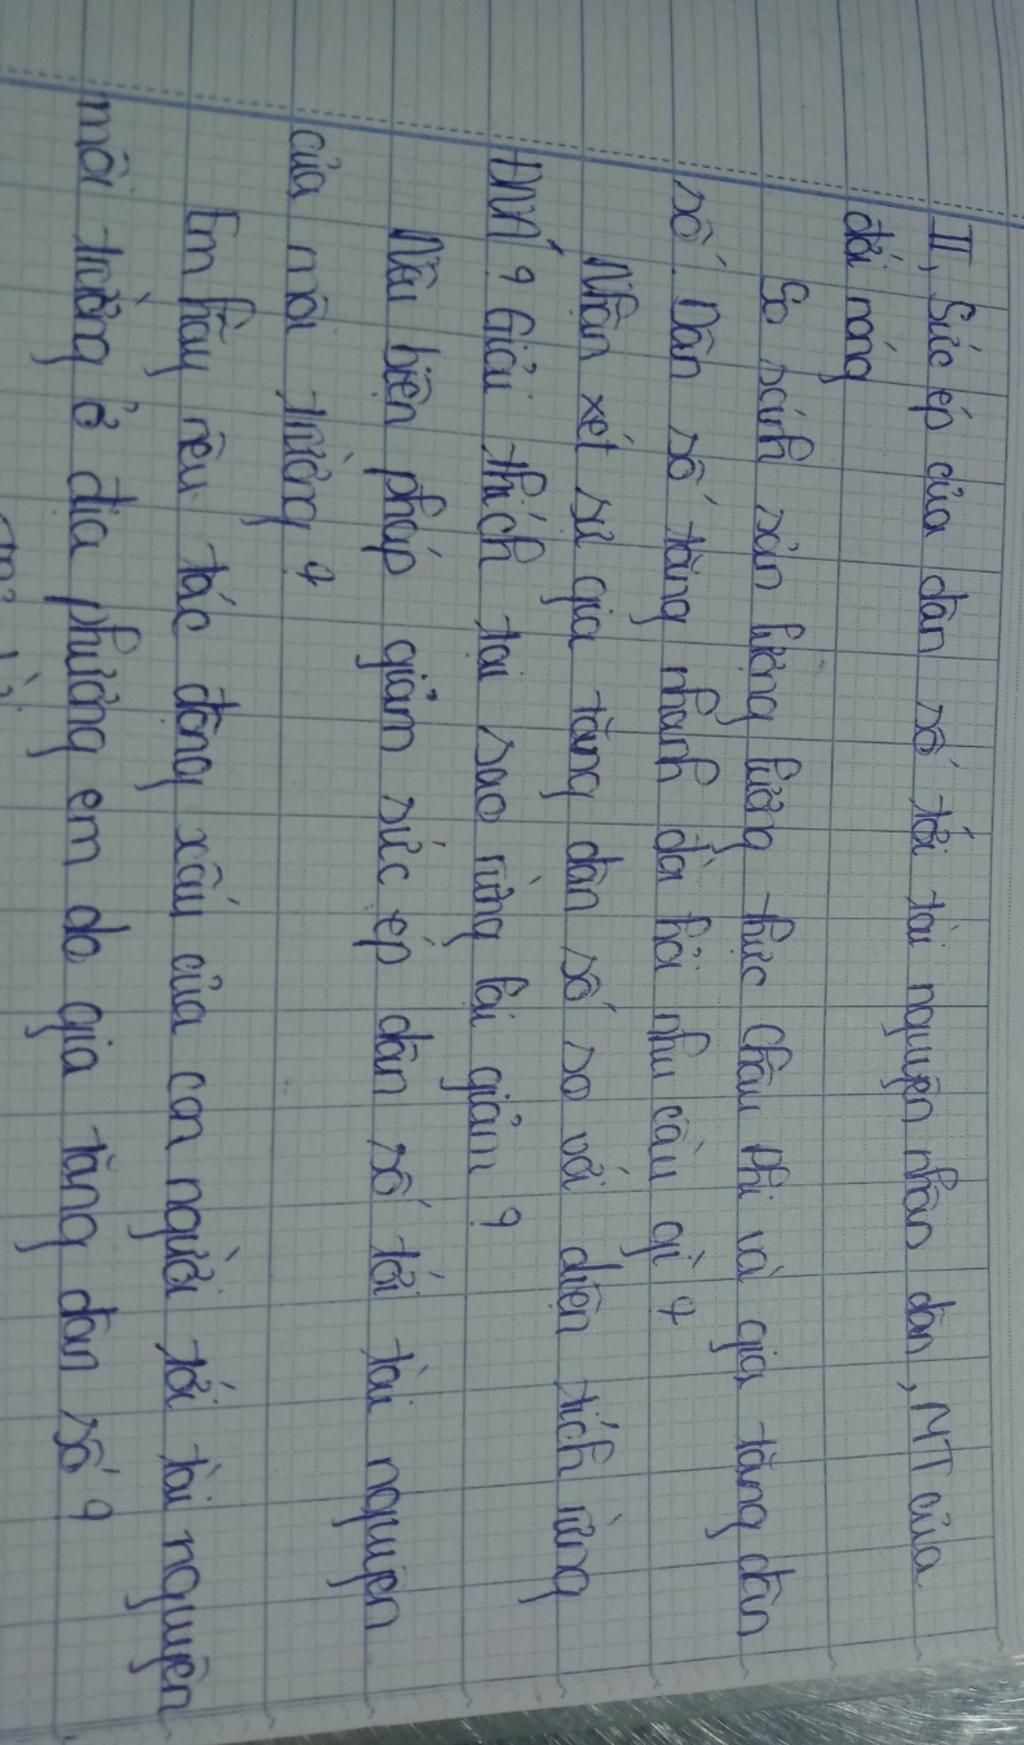 II, Sức ép của dân số tới tài nguyên nhân dân, MT của
đới nóng
So sánh sản lượng lương thực Châu Phi và gia tăng dân
số. Dân số tăng nhanh đòi hỏi nhu cầu gì?
Nhận xét sự gia tăng dân số so với diện tích rừng
ĐNÁ? Giải thích tại sao rừng lại giảm?
Nêu biện pháp giảm sức ép dân số tới tài nguyên
của môi trường?
Em hãy nêu tác động xấu của con người tới tài nguyên
môi trường ở địa phương em do gia tăng dân số?